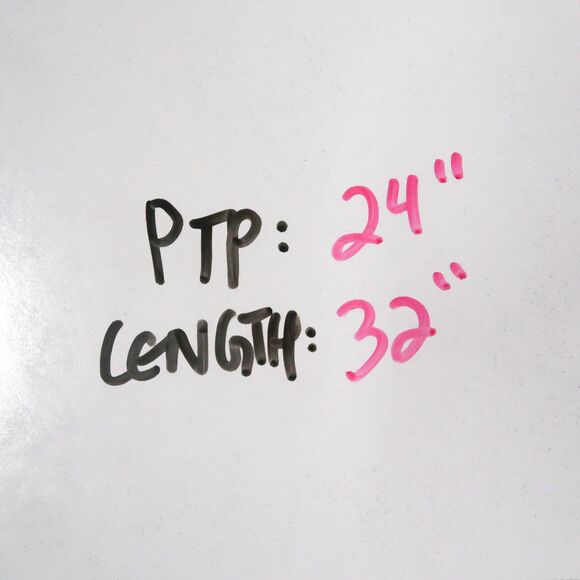 PTP: 24"
LENGTH: 32"